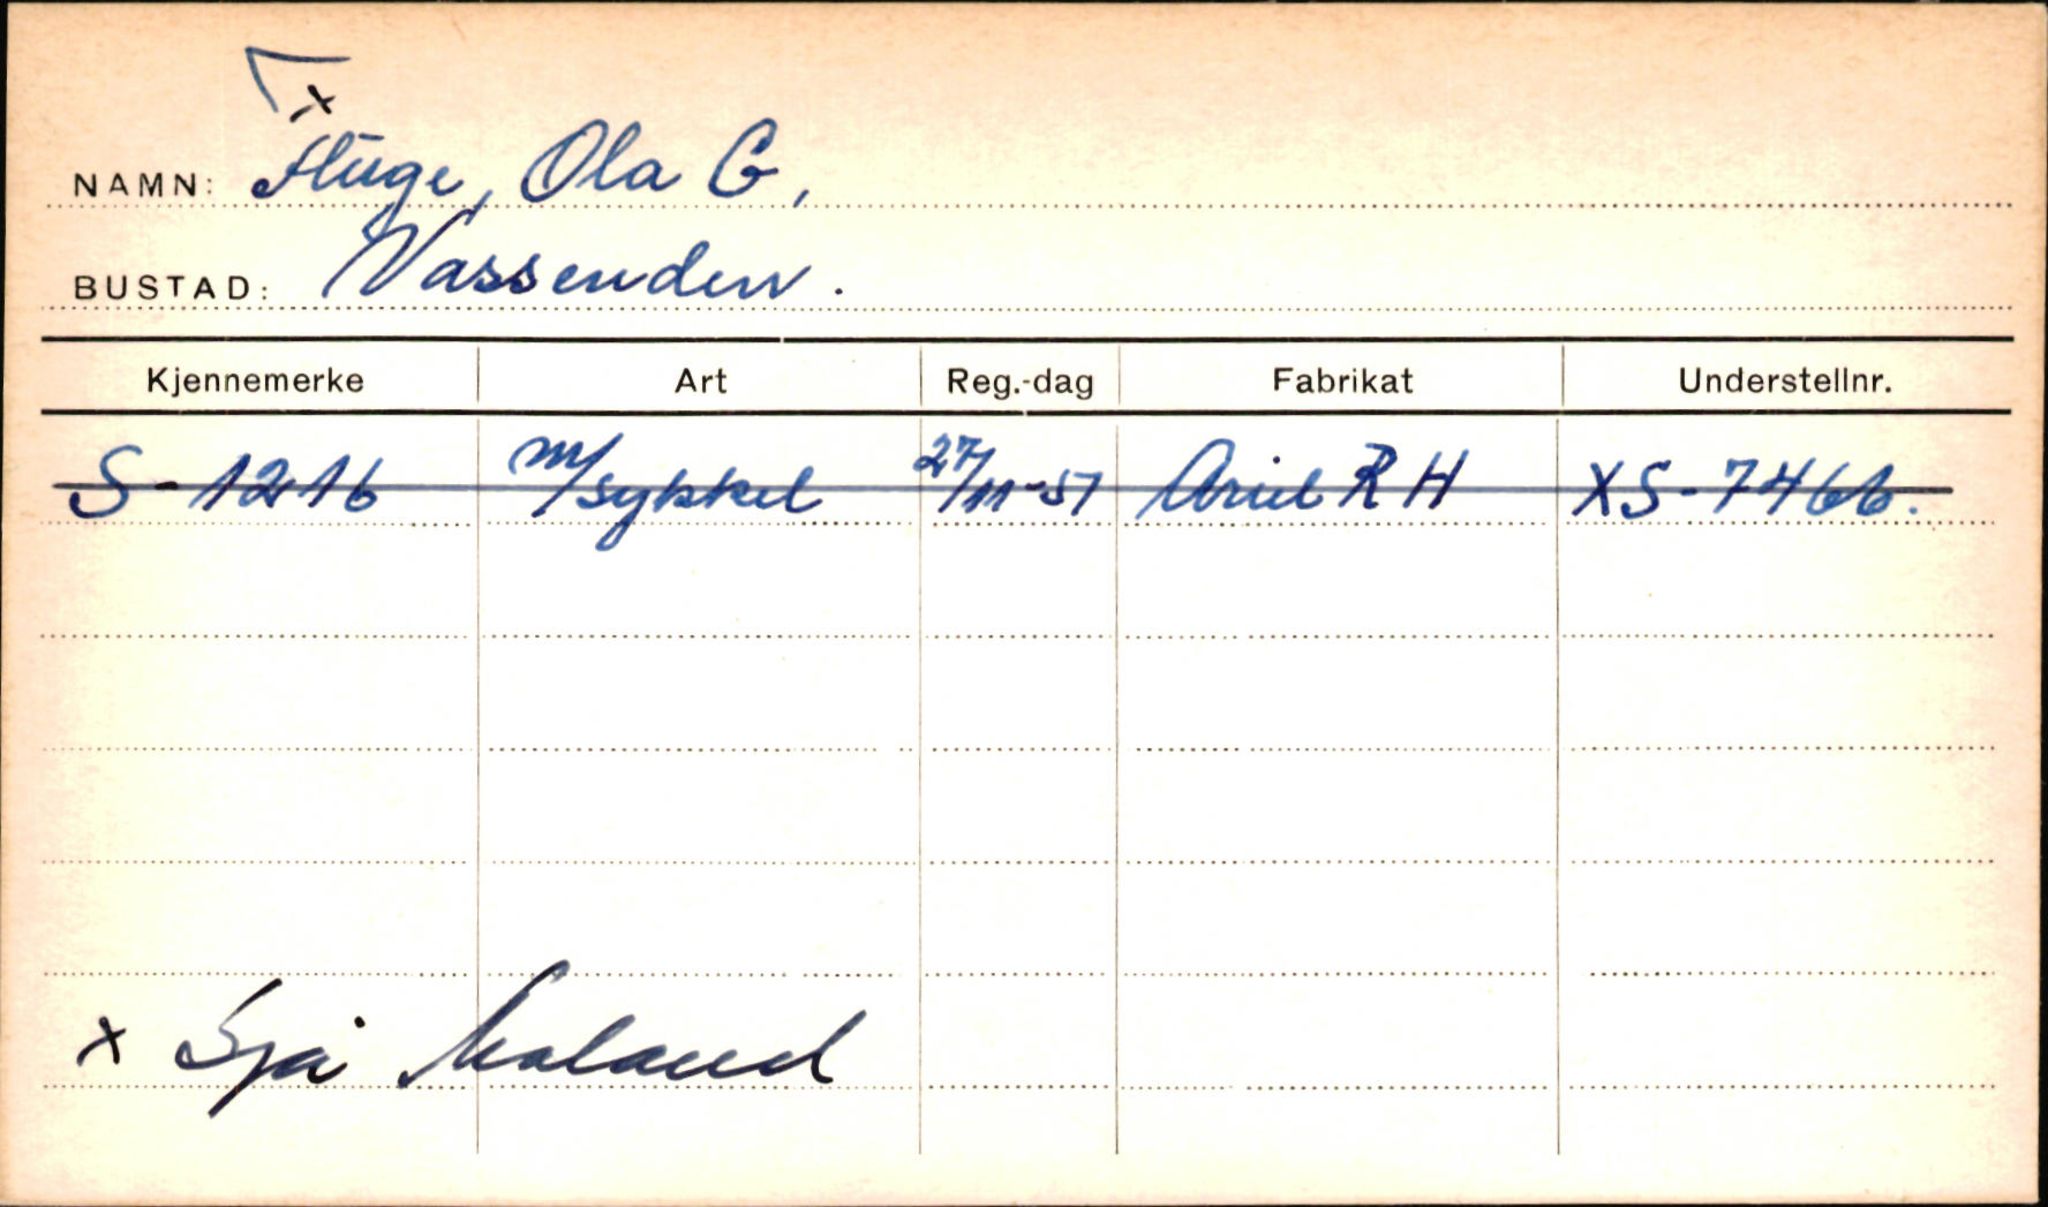 x
NAMN: Fluge, Ola G,
BUSTAD: Vassenden.
Kjennemerke Art Reg.-dag Fabrikat Understellnr.
S-1216 m/sykkel 27/11-51 Ariel RH XS-7466.
x Sjå